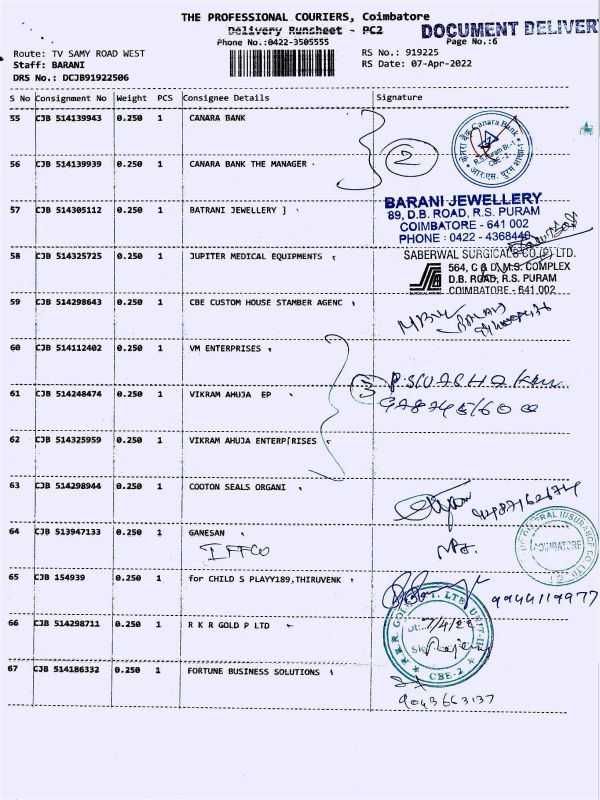 THE PROFESSIONAL COURIERS, Coimbatore
Delivery Runsheet - PC2
DOCUMENT DELIVER
Phone No.:0422-3505555
Page No.:6
Route: TV SAMY ROAD WEST
RS No.: 919225
Staff: BARANI
RS Date: 07-Apr-2022
DRS No.: DCJB91922506
S No Consignment No Weight PCS Consignee Details Signature
55 CJB 514139943 0.250 1 CANARA BANK
Canara Bank
R.S. Puram Br.-1
CBE-2
2
56 CJB 514139939 0.250 1 CANARA BANK THE MANAGER
57 CJB 514305112 0.250 1 BATRANI JEWELLERY ]
BARANI JEWELLERY
89, D.B. ROAD, R.S. PURAM
COIMBATORE - 641 002
PHONE : 0422 - 4368440
58 CJB 514325725 0.250 1 JUPITER MEDICAL EQUIPMENTS
SABERWAL SURGICALS CO.(P) LTD.
564, C & D, M.S. COMPLEX
D.B. ROAD, R.S. PURAM
COIMBATORE - 641 002
59 CJB 514298643 0.250 1 CBE CUSTOM HOUSE STAMBER AGENC
60 CJB 514112402 0.250 1 VM ENTERPRISES
3
61 CJB 514248474 0.250 1 VIKRAM AHUJA EP
62 CJB 514325959 0.250 1 VIKRAM AHUJA ENTERP[RISES
63 CJB 514298944 0.250 1 COOTON SEALS ORGANI
64 CJB 513947133 0.250 1 GANESAN
IFFCO
COIMBATORE
65 CJB 154939 0.250 1 for CHILD S PLAYY189,THIRUVENK
9944119977
66 CJB 514298711 0.250 1 R K R GOLD P LTD
7/4/22
CBE-2
67 CJB 514186332 0.250 1 FORTUNE BUSINESS SOLUTIONS
9043663137